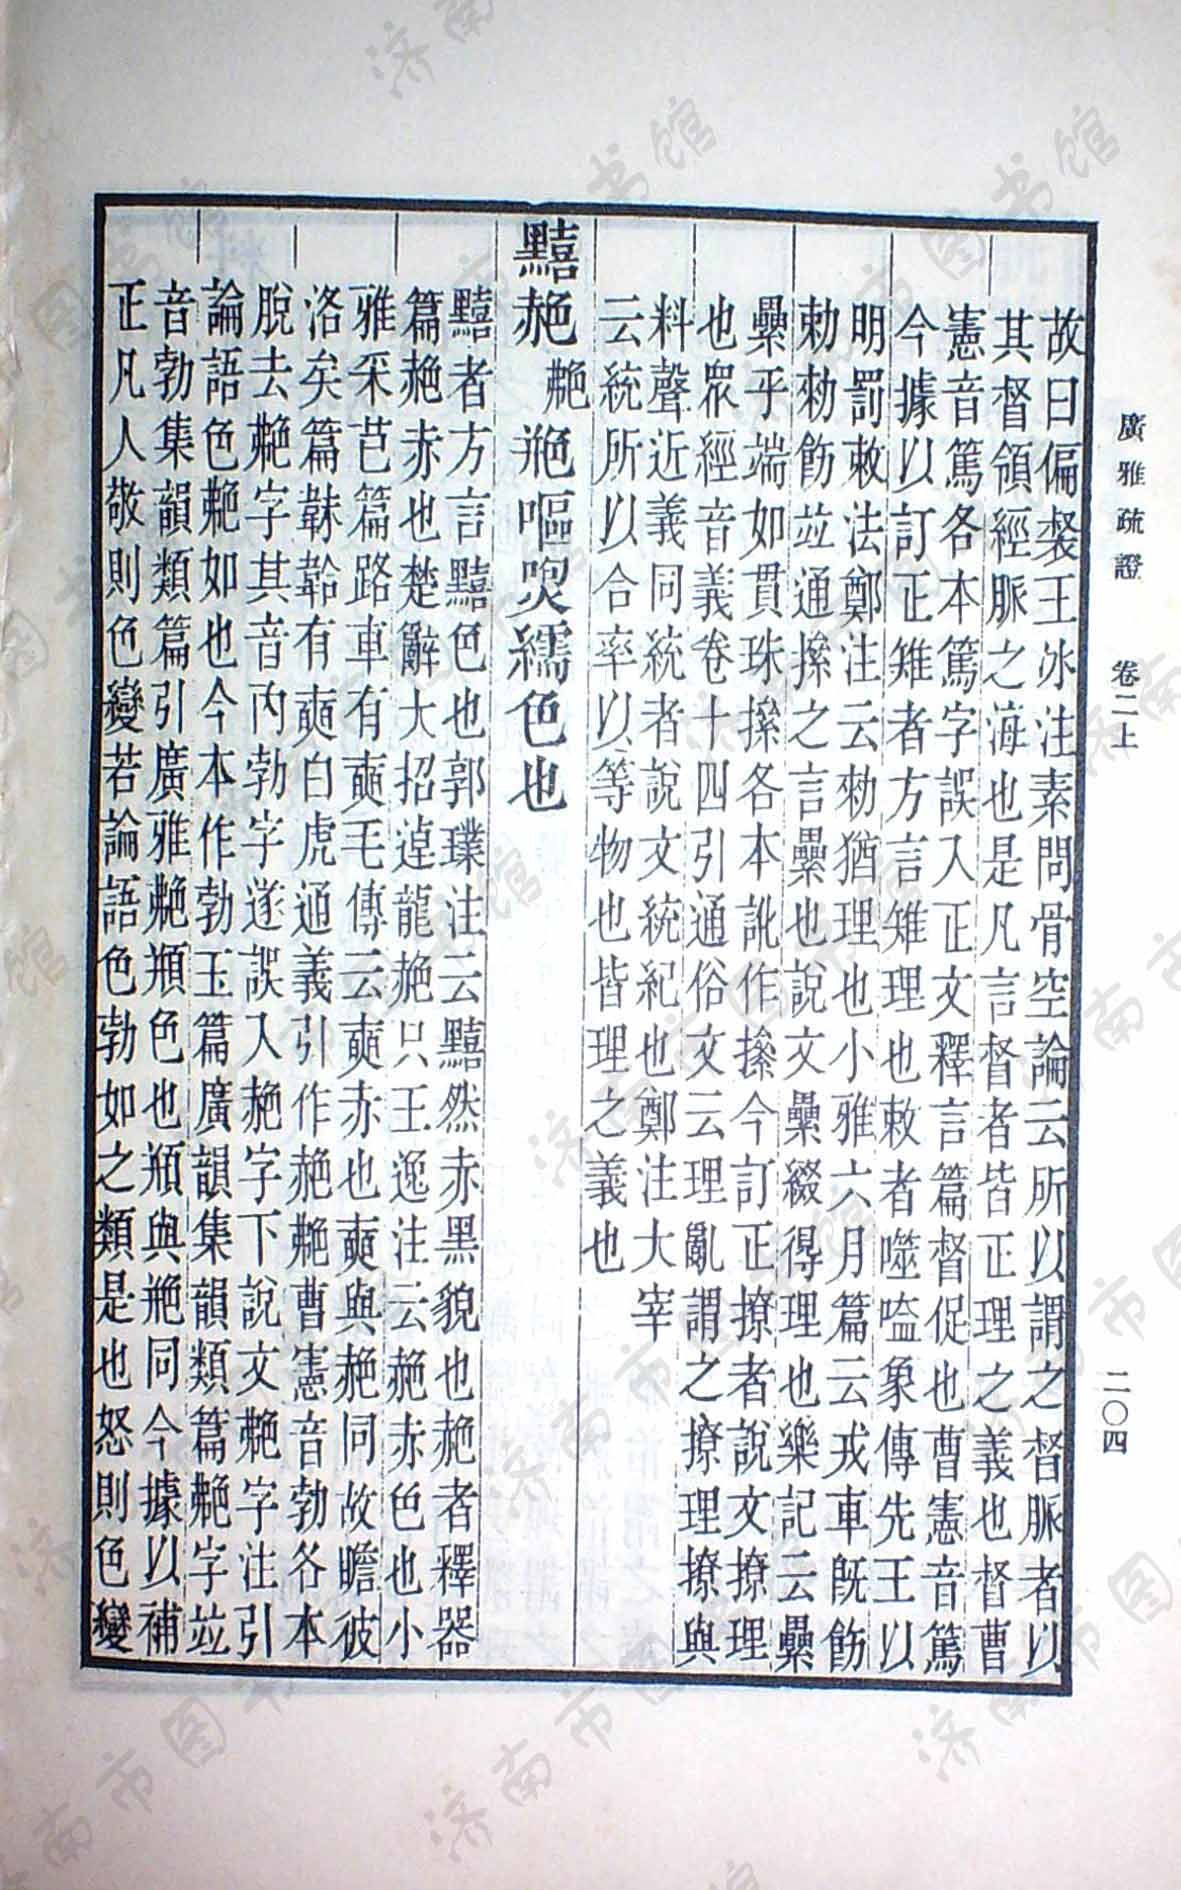 廣雅疏證　卷二上　二〇四
故曰偏裻王冰注素問骨空論云所以謂之督脈者以
其督領經脈之海也是凡言督者皆正理之義也督曹
憲音篤各本篤字誤入正文釋言篇督促也曹憲音篤
今據以訂正雉者方言雉理也敕者噬嗑象傳先王以
明罰敕法鄭注云勑猶理也小雅六月篇云戎車旣飭
勅勑飭竝通縩之言纍也說文纍綴得理也樂記云纍
纍乎端如貫珠各本訛作今訂正撩者說文撩理
也眾經音義卷十四引通俗文云理亂謂之撩理撩與
料聲近義同統者說文統紀也鄭注大宰
云統所以合率以等物也皆理之義也
䵱赩䒌艴嘔煗繻色也
䵱者方言䵱色也郭璞注云䵱然赤黑貌也赩者釋器
篇赩赤也楚辭大招逴龍赩只王逸注云赩赤色也小
雅采芑篇路車有奭毛傳云奭赤也奭與赩同故瞻彼
洛矣篇韎韐有奭白虎通義引作赩艴曹憲音勃各本
脫去艴字其音內勃字遂誤入赩字下說文艴字注引
論語色艴如也今本作勃玉篇廣韻集韻類篇艴字竝
音勃集韻類篇引廣雅艴頩色也頩與艵同今據以補
正凡人敬則色變若論語色勃如之類是也怒則色變
济南市图书馆